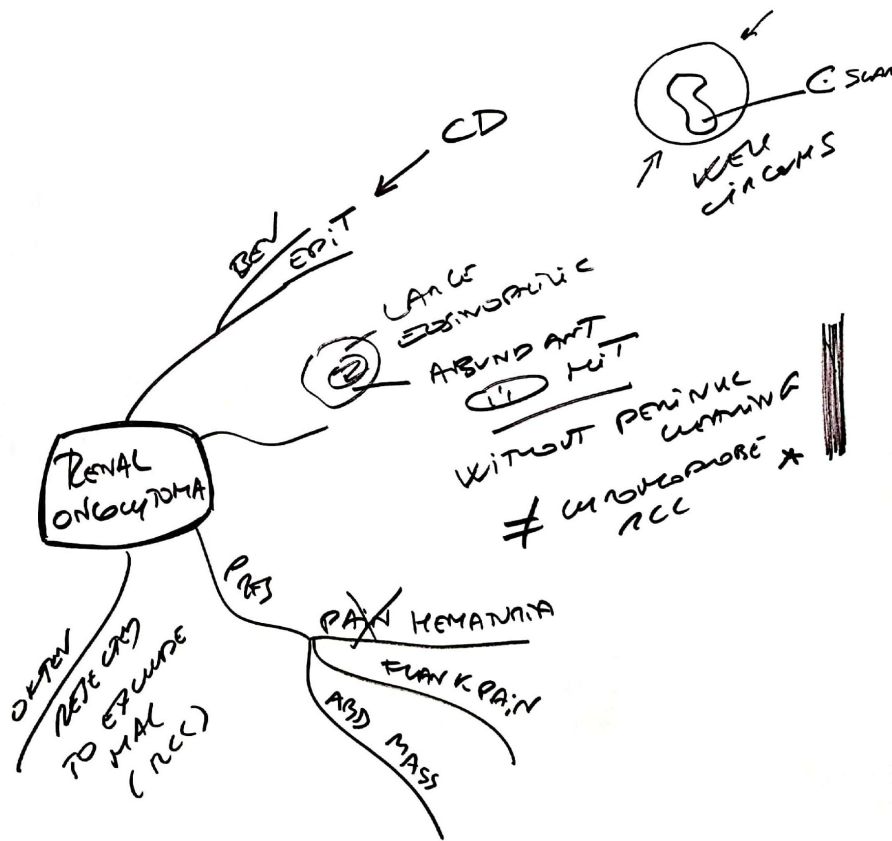 CD
C SCAR
WELL
CIRCUMS
BEN
EPIT
LARGE
EOSINOPHILIC
ABUNDANT
MIT
WITHOUT PERINUC
CLEARING
≠ CHROMOPHOBE *
RCC
RENAL
ONCOCYTOMA
PRES
PAIN HEMATURIA
FLANK PAIN
ABD MASS
OFTEN
RESECTED
TO EXCLUDE
MAL
(RCC)